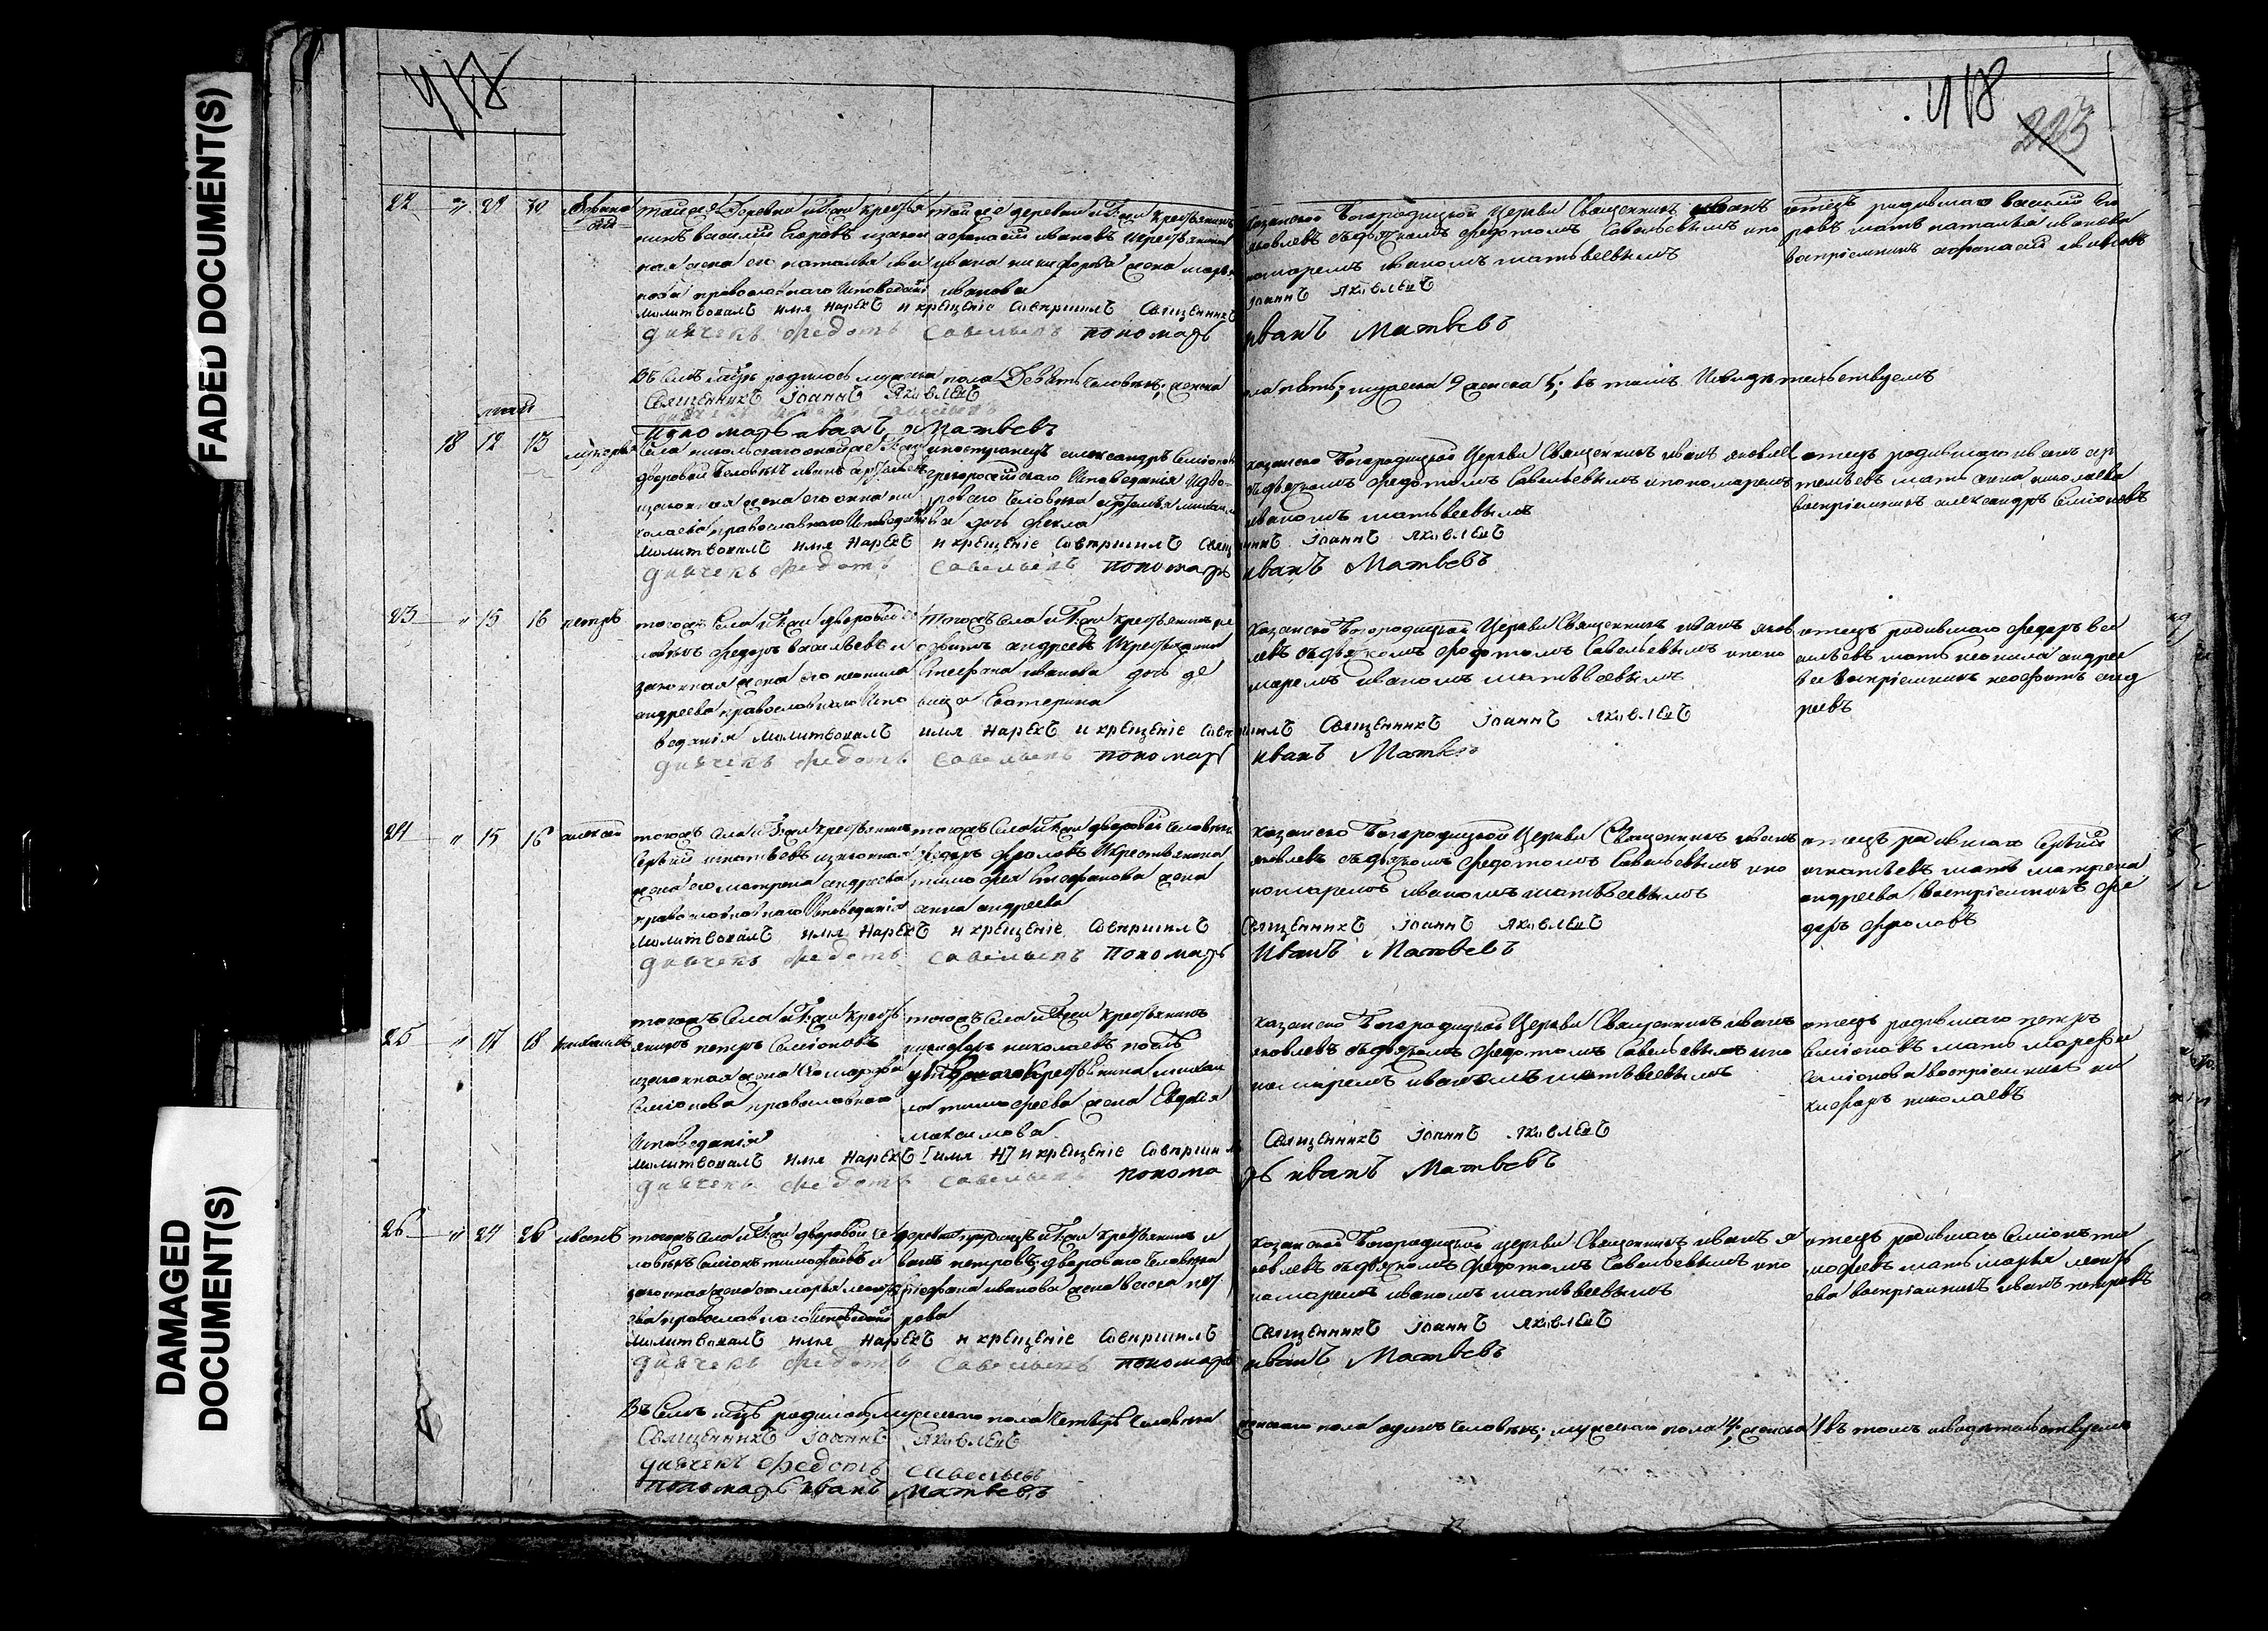 FADED DOCUMENT(S)
DAMAGED
DOCUMENT(S)
418
418
223
22 29 30
тойже деревни крестья
нинъ василий Егоровъ изакон
ная жена ег наталья ива
нова православнаго исповедані
тойже деревни крестьянинъ
афанасий ивановъ икрестьянина
ивана никифорова жена марья
иванова
казанской Богородицкой Церкви Священникъ иванъ
яковлевъ съдьячкомъ федотомъ Савельевымъ ипо
номаремъ иваномъ матвеевымъ
отецъ родившаго василий Его
ровъ мать наталья иванова
воспріемникъ афанасий ивановъ
молитвовалъ имя нарекъ и крещеніе совершилъ Священникъ Іоаннъ Яковлевъ
дьячекъ Федотъ Савельевъ пономарь иванъ Матвевъ
Въ семъ мцѣ родилось мужеска пола Девять человѣкъ; женска пола пять; мужеска 9 женска 5; въ томъ свидѣтельствуемъ
Священникъ Іоаннъ Яковлевъ
дьячекъ Федотъ Савельевъ
пономарь иванъ Матвевъ
май
18 12 13
Села никольскаго
дворовой человѣкъ иванъ
изаконная жена его анна ни
колаева православнаго исповедані
иностранецъ александръ Семіоновъ
исповедания идво
роваго человѣка михаила
дочь фекла
казанско Богородицкой Церкви Священникъ иванъ яковлев
съдьячкомъ федотомъ Савельевымъ ипономаремъ
иваномъ матвеевымъ
отецъ родившаго иванъ ар
темьевъ мать анна николаева
воспріемникъ александръ Семіоновъ
молитвовалъ имя нарекъ и крещеніе совершилъ Священникъ Іоаннъ Яковлевъ
дьячекъ Федотъ Савельевъ пономарь иванъ Матвевъ
23 15 16 петръ
тогожъ села дворовой че
ловѣкъ федоръ васильевъ и
законная жена его неонила
андреева православнаго испо
ведания
тогожъ села крестьянинъ не
офитъ андреевъ икрестьянина
Стефана иванова дочь де
вица Екатерина
казанско Богородицкой Церкви Священникъ иванъ яков
левъ съдьячкомъ федотомъ Савельевымъ ипоно
маремъ иваномъ матвеевымъ
отецъ родившаго федоръ ва
сильевъ мать неонила андрее
ва воспріемникъ неофитъ анд
реевъ
молитвовалъ имя нарекъ и крещеніе совершилъ Священникъ Іоаннъ Яковлевъ
дьячекъ Федотъ Савельевъ пономарь иванъ Матвевъ
24 15 16 алексей
тогожъ села крестьянинъ
Сергѣй игнатьевъ изаконная
жена его матрена андреева
православнаго исповедания
тогожъ села дворовой человѣкъ
федоръ фроловъ икрестьянина
тимофея Стефанова жена
анна андреева
казанско Богородицкой Церкви Священникъ иванъ
яковлевъ съдьячкомъ федотомъ Савельевымъ ипо
номаремъ иваномъ матвеевымъ
отецъ родившаго Сергѣй
игнатьевъ мать матрена
андреева воспріемникъ фе
доръ фроловъ
молитвовалъ имя нарекъ и крещеніе совершилъ Священникъ Іоаннъ Яковлевъ
дьячекъ Федотъ Савельевъ пономарь иванъ Матвевъ
25 17 18 михаилъ
тогожъ села крестья
нинъ петръ Семіоновъ
изаконная жена его марфа
Семіонова православнаго
исповедания
тогожъ села крестьянинъ
никифоръ николаевъ
крестьянина михаи
ла тимофеева жена Евдокия
максимова
казанско Богородицкой Церкви Священникъ иванъ
яковлевъ съдьячкомъ федотомъ Савельевымъ ипо
номаремъ иваномъ матвеевымъ
отецъ родившаго петръ
Семіоновъ мать марфа
Семіонова воспріемникъ ни
кифоръ николаевъ
молитвовалъ имя нарекъ [имя н] и крещеніе совершилъ Священникъ Іоаннъ Яковлевъ
дьячекъ Федотъ Савельевъ пономарь иванъ Матвевъ
26 24 26 иванъ
тогожъ села дворовой че
ловѣкъ Семіонъ тимофеевъ и
законная жена его марья леонть
ева православнаго исповеданй
крестьянинъ и
ванъ петровъ; двороваго человѣка
Стефана иванова жена васса пет
рова
казанской Богородицкой церкви Священникъ иванъ я
ковлевъ съдьячкомъ федотомъ Савельевымъ ипо
номаремъ иваномъ матвеевымъ
отецъ родившаго Семіонъ ти
мофеевъ мать марья леонть
ева воспріемникъ иванъ петровъ
молитвовалъ имя нарекъ и крещеніе совершилъ Священникъ Іоаннъ Яковлевъ
дьячекъ Федотъ Савельевъ пономарь иванъ Матвевъ
Въ семъ мцѣ родилось мужескаго пола четыре человѣка женскаго пола одинъ человѣкъ; мужескаго пола 4; женска 1 въ томъ свидѣтельствуемъ
Священникъ Іоаннъ Яковлевъ
дьячекъ Федотъ Савельевъ
пономарь иванъ Матвевъ